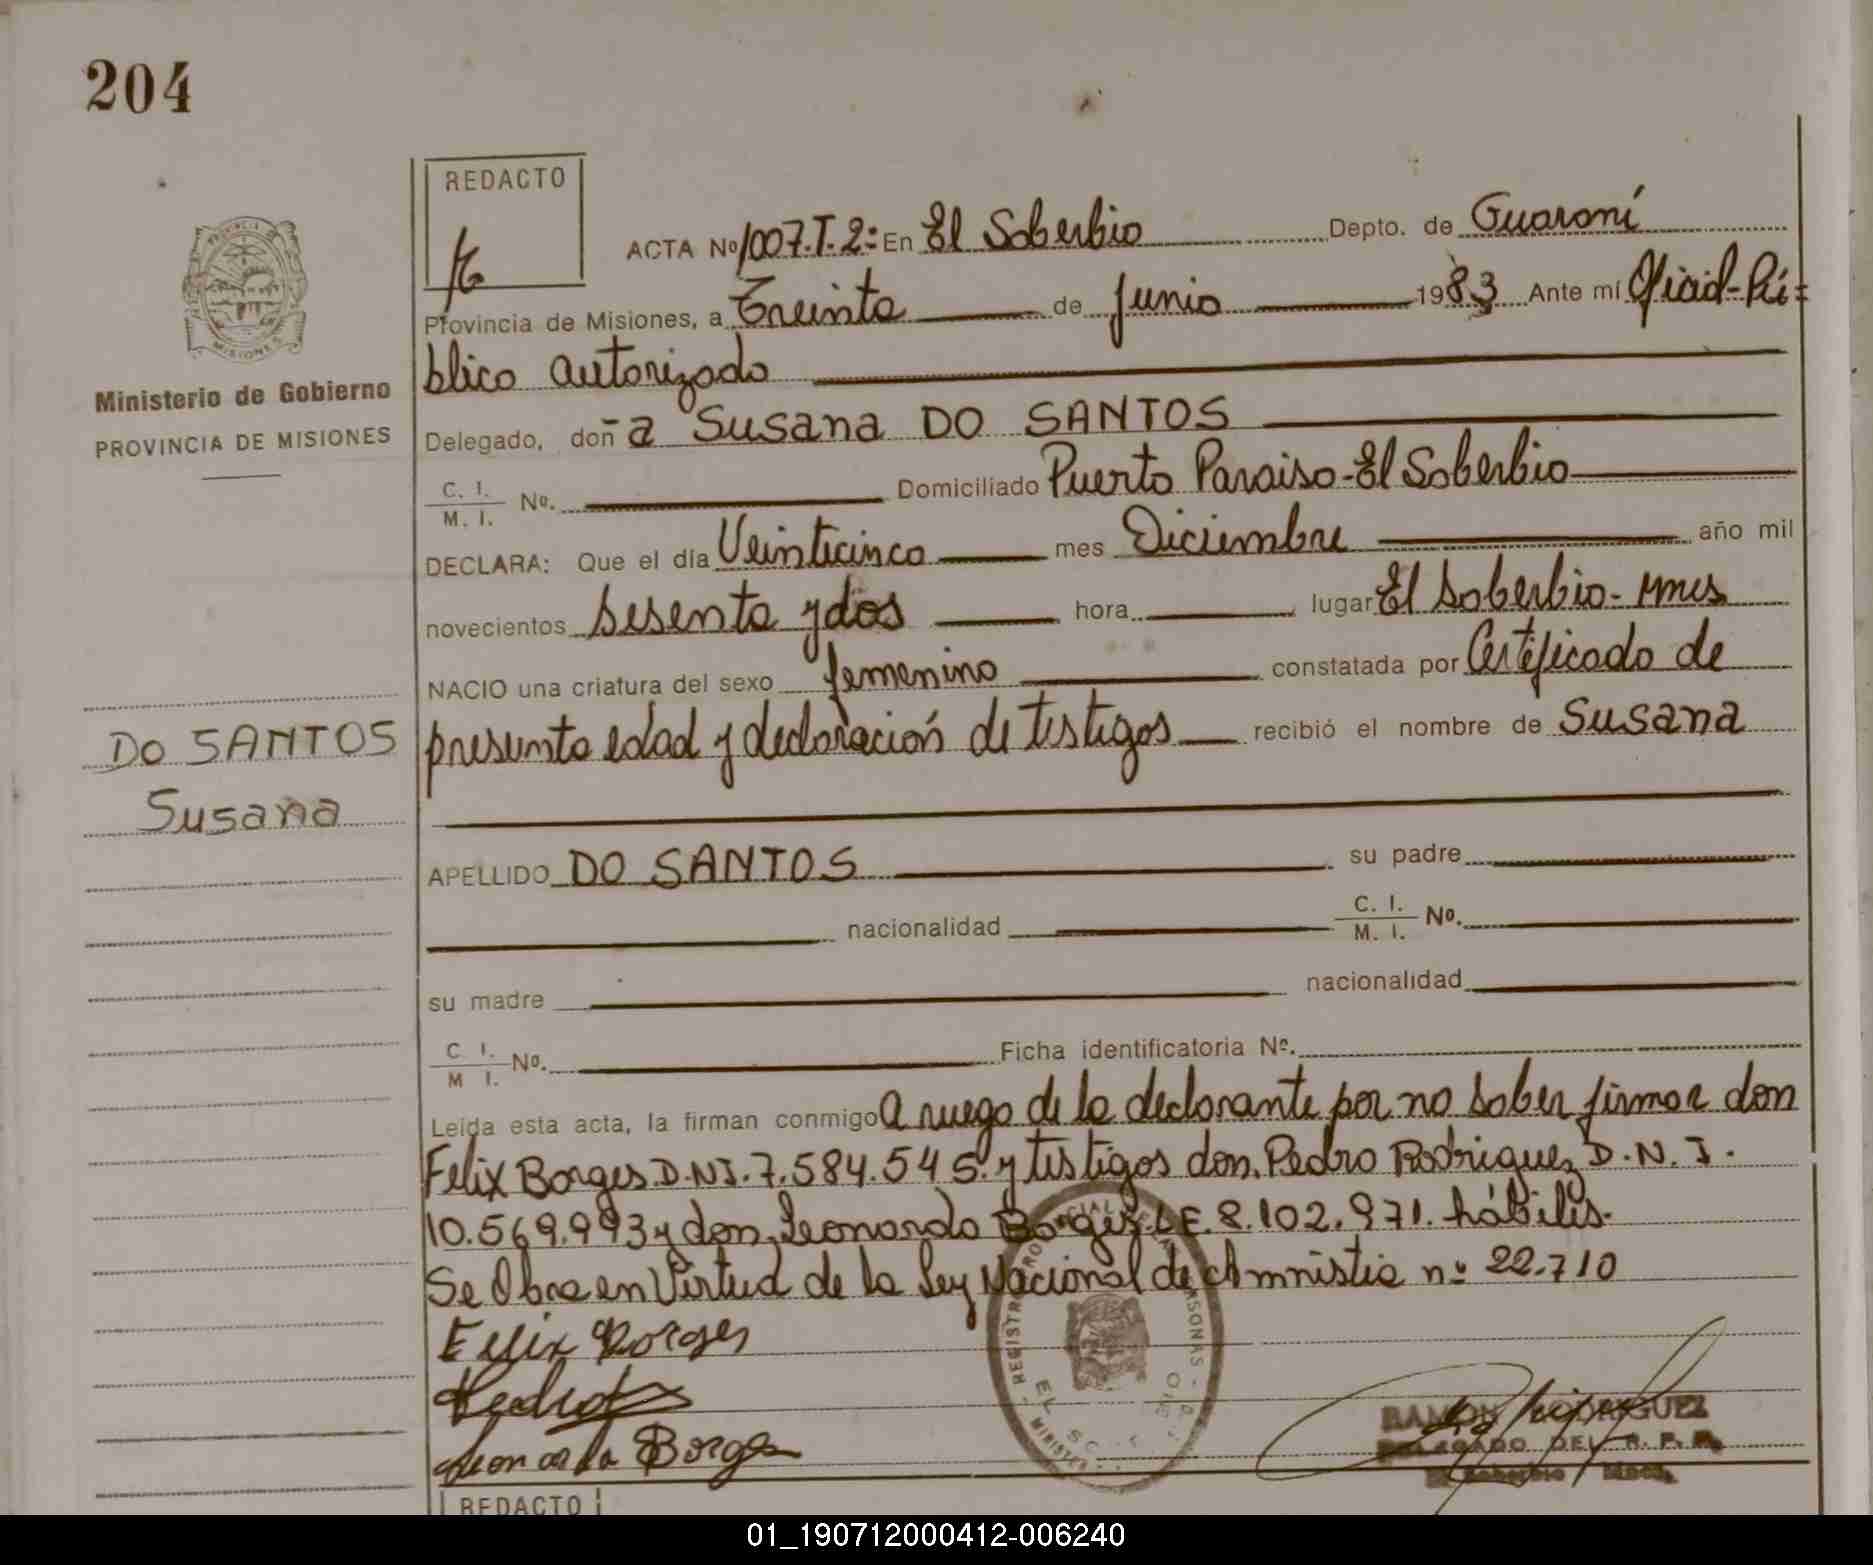 204
REDACTO
ACTA Nº 1007.T.2: En El Soberbio Depto. de Guaraní
Provincia de Misiones, a Treinta de Junio 1983 Ante mí Oficial-Pú=
blico autorizado
Ministerio de Gobierno
PROVINCIA DE MISIONES
Delegado, doña Susana DO SANTOS
C. I.
M. I. Nº. Domiciliado Puerto Paraiso-El Soberbio
DECLARA: Que el día Veinticinco mes Diciembre año mil
novecientos sesenta y dos hora lugar El Soberbio- Mnes
NACIO una criatura del sexo femenino constatada por Certificado de
DO SANTOS
Susana
presunta edad y declaración de testigos recibió el nombre de Susana
APELLIDO DO SANTOS su padre
nacionalidad C. I.
M. I. Nº.
su madre nacionalidad
C I.
M I. Nº. Ficha identificatoria Nº.
Leída esta acta, la firman conmigo a ruego de la declarante por no saber firmar don
Felix Borges D.N.I. 7.584.545. y testigos don Pedro Rodriguez D.N.I.
10.569.993 y don Leonardo Borges L.E. 8.102.971. hábiles.
Se Obra en Virtud de la Ley Nacional de Amnistia nº 22.710
Felix Borges
Pedro
Leonardo Borges
RAMON RODRIGUEZ
DELEGADO DEL R. P. P.
El Soberbio / Mnes.
REDACTO
01_190712000412-006240